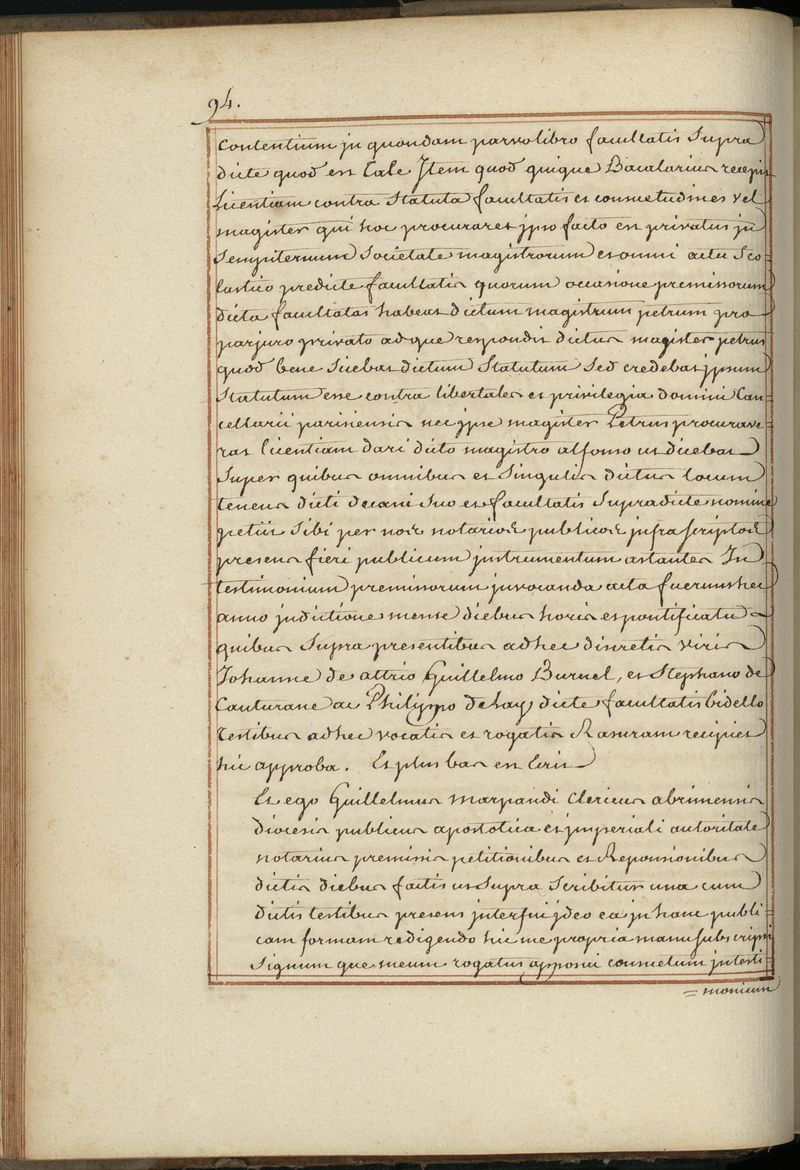 94.
contentium in quondam parvo libro facultatis Supra
dicte quod est tale Jtem quod quique Bacalarius recepit
Licentiam contra Statuta facultatis et consuetudines vel
magister qui hoc procuraret ipso facto est privatus in
Sempiternum Societate magistrorum et omni actu Sco-
lastico predicte facultatis quorum occasione premissorum
dicta facultatas habeat dictum magistrum petrum pro
parjuro privato ad que respondit dictus magister petrus
quod bene Sciebat dictum Statutum Sed credebat ipsum
Statutum esse contra libertates et privilegia domini Can
cellarii parisiensis nec ipse magister Petrus procurave
rat licentiam dari dicto magistro alfonso ut dicebat
Super quibus omnibus et Singulis dictus locum
tenens dicti decani Suo et facultatis Supradicte nomine
petiit Sibi per nos notarios publicos infrascriptos
presens fieri publicum instrumentum astantes In
testimonium premissorum invocanda acta fuerunt hec
anno indictione mense diebus horis et pontificatu
quibus Supra presentibus ad hec discretis viris
Johanne de attrio Guillelmo Burnel, et Stephano de
Cauturane ac Philippo de lay dicte facultatis bidello
testibus ad hec vocatis et rogatis Rasuram recipiet
hic approba. Et plus bas est Ecrit
Et ego Guillelmus marpaudi Clericus abrincensis
diocesis publicus apostolica et imperiali autoritate
notarius premissis petitionibus et Reponsionibus
dictis diebus factis ut Supra Scribitur una cum
dictis testibus presens interfui ideo ea in hanc publi=
cam formam redigendo hic me propria manu subscripsi
Signum que meum rogatus apposui consuetum in testi=
= monium